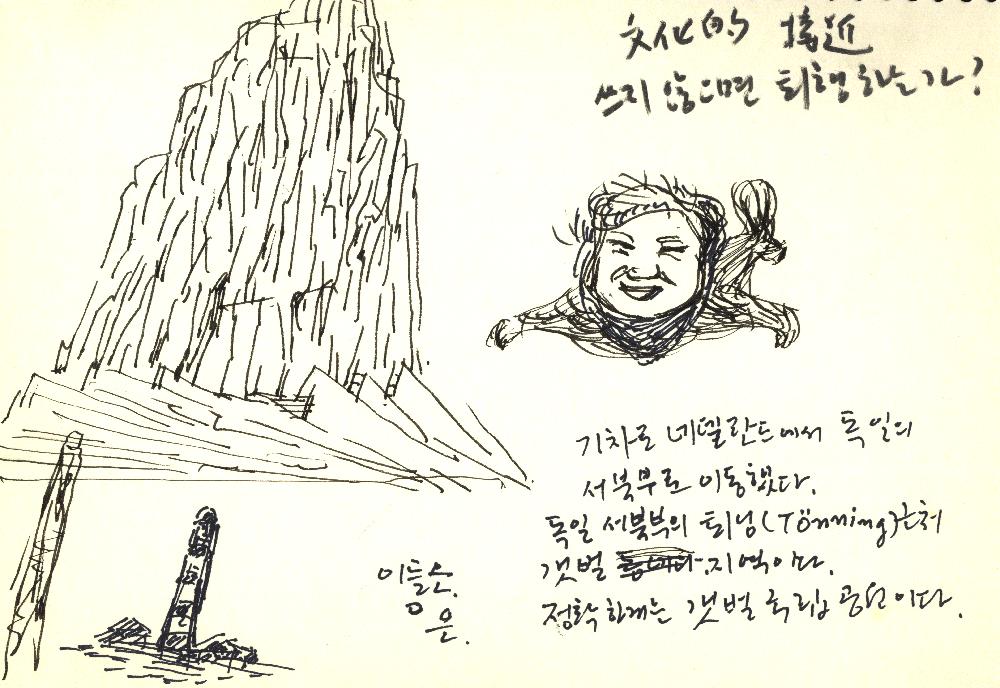 文化的 接近
쓰지 않으면 퇴행하는가?
기차로 네델란드에서 독일의
서북부로 이동했다.
독일 서북부의 퇴닝(Tönning)근처
갯벌 지역이다.
정확하게는 갯벌 국립 공원이다.
이들은.
은.